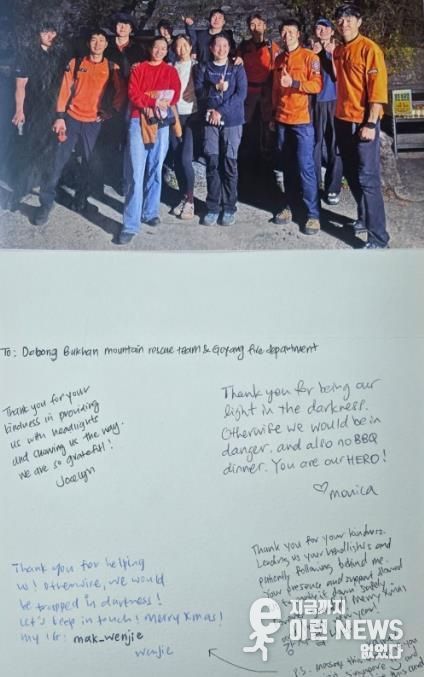 To: Dobong Bukhan mountain rescue team & Goyang fire department
Thank you for your
kindness in providing
us with headlights
and showing us the way.
we are so grateful!
Jocelyn
Thank you for being our
light in the darkness.
Otherwise we would be in
danger, and also no BBQ
dinner. You are our HERO!
♡ monica
Thank you for helping
us! Otherwise, we would
be trapped in darkness!
Let's keep in touch! Merry Xmas!
my IG: mak_wenjie
wenjie
Thank you for your kindness.
Lending us your headlights and
patiently following behind me.
Your presence and support allowed
down safely
Merry Xmas
year!
P.S.
you
Singapore and
card
지금까지
이런 NEWS
없었다